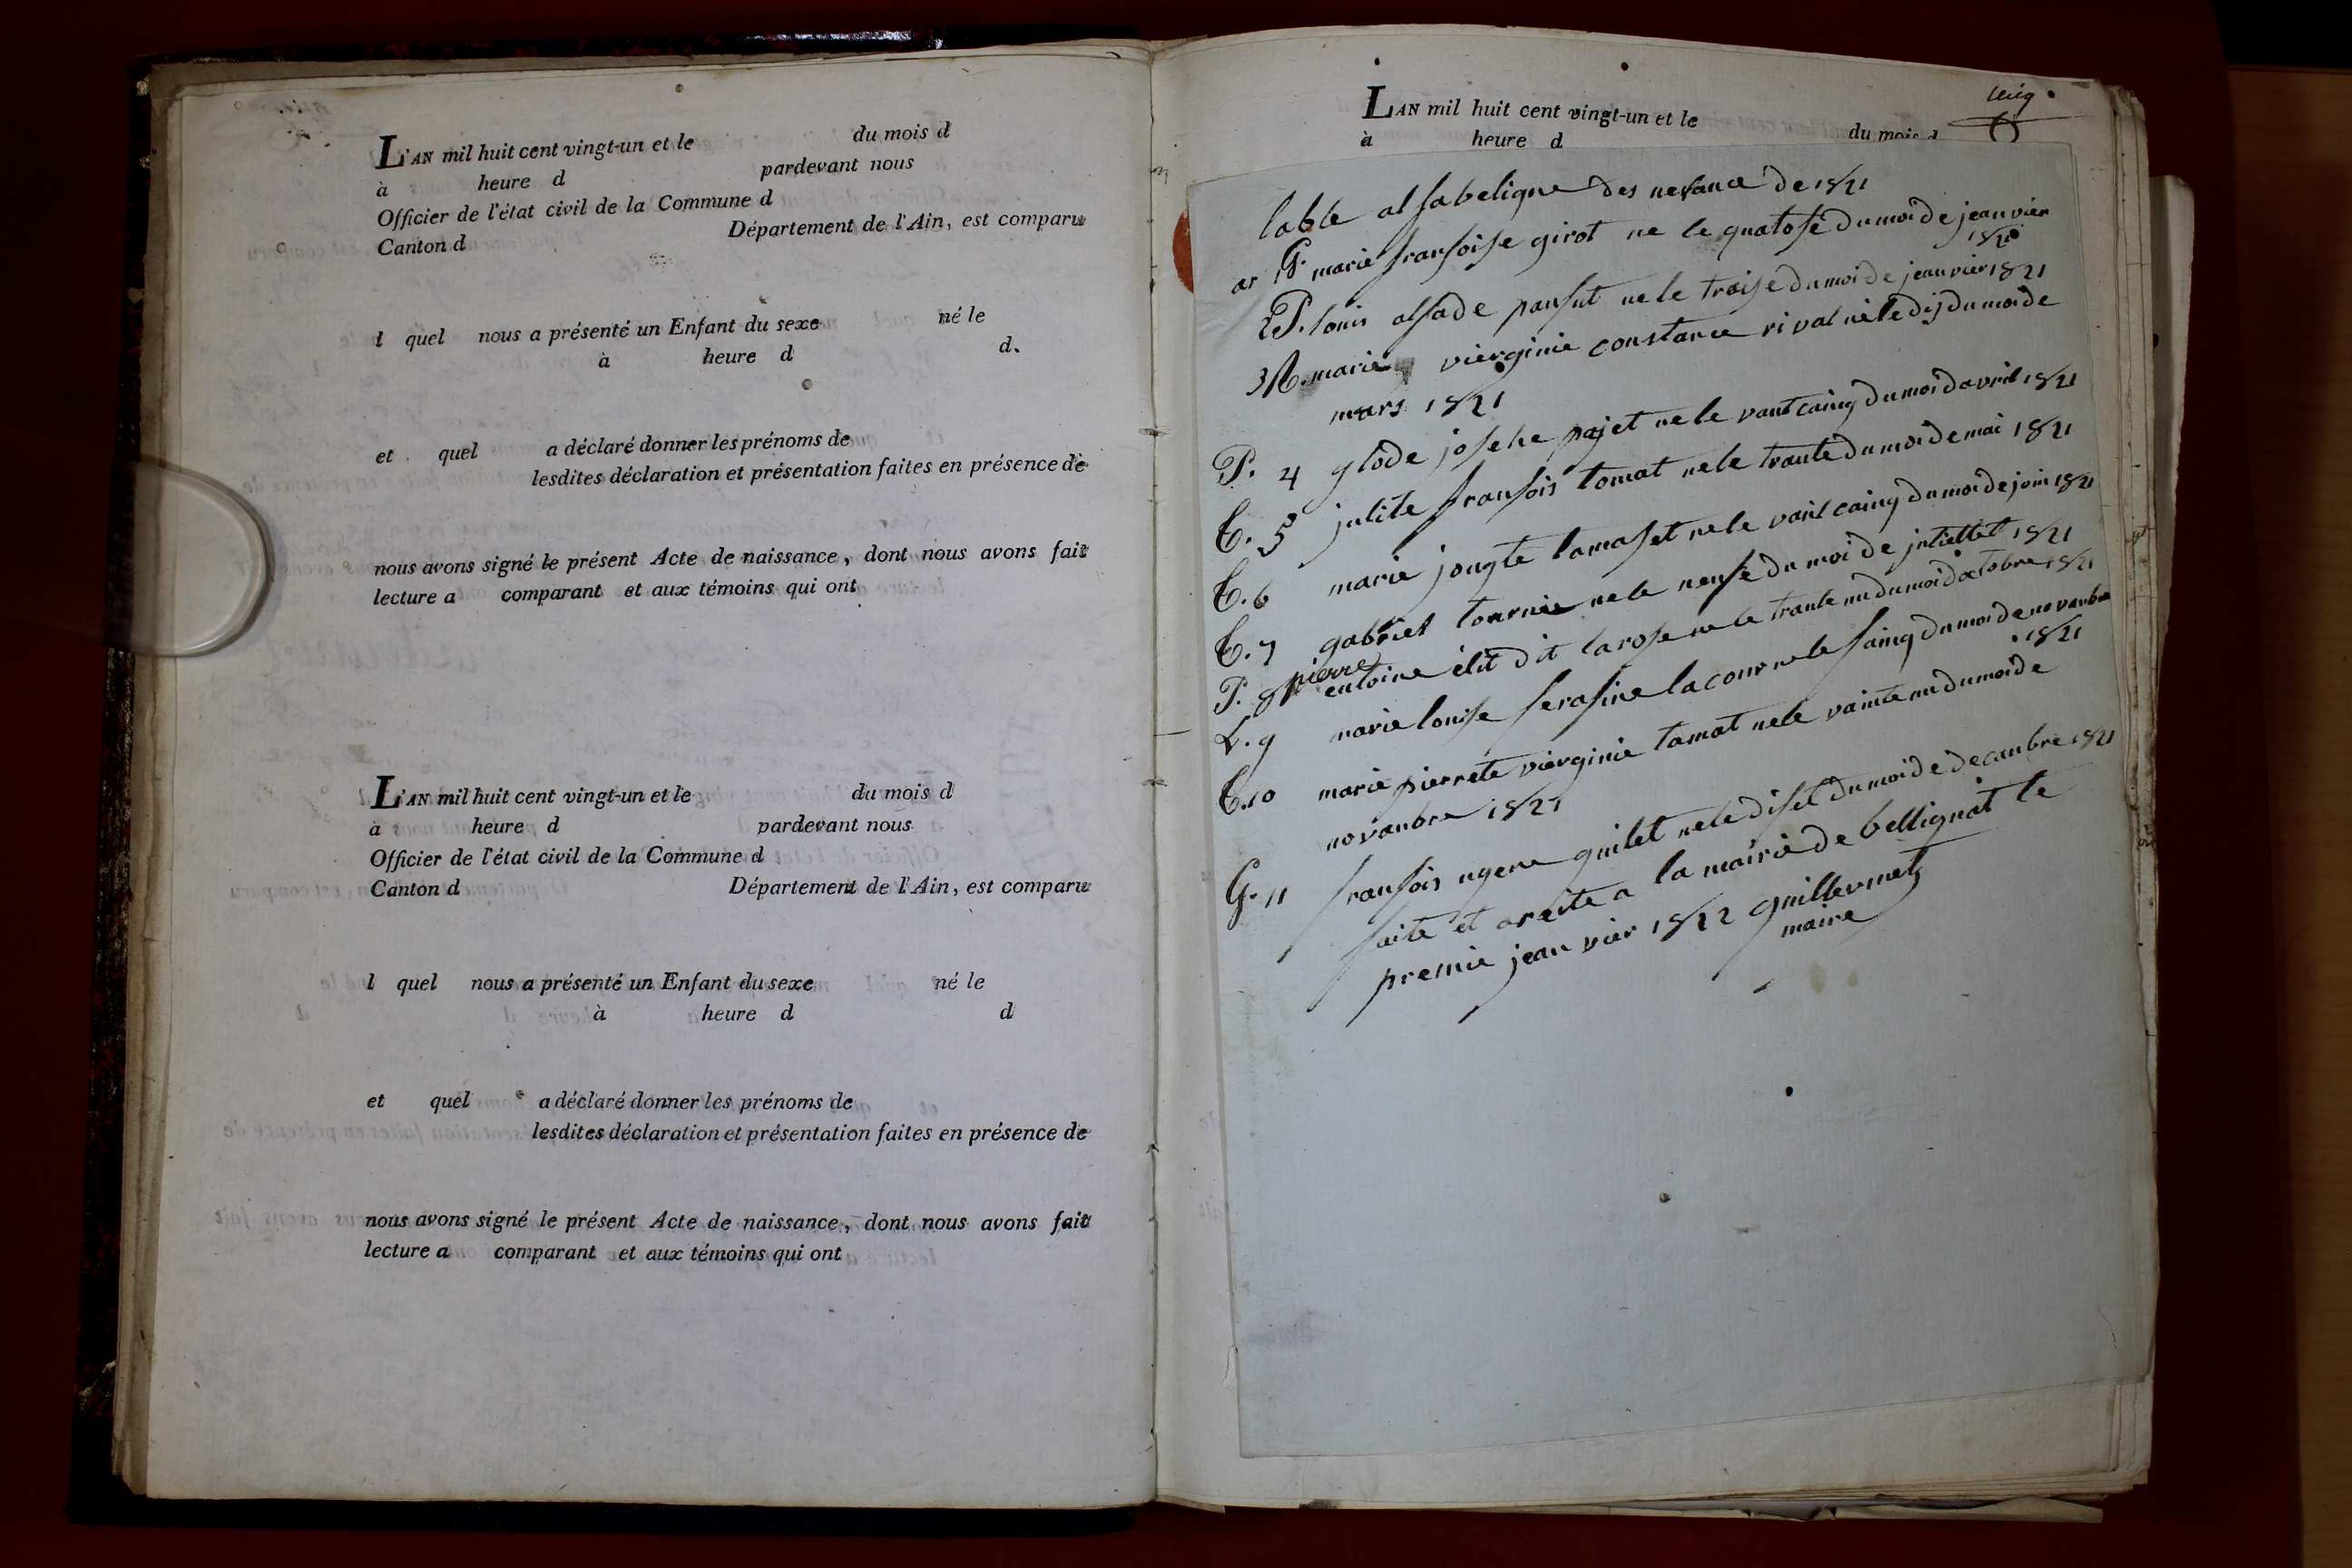 L'AN mil huit cent vingt-un et le du mois d
à heure d pardevant nous
Officier de l'état civil de la Commune d
Canton d Département de l'Ain, est comparu
l quel nous a présenté un Enfant du sexe né le
à heure d d.
et quel a déclaré donner les prénoms de
lesdites déclaration et présentation faites en présence de
nous avons signé le présent Acte de naissance, dont nous avons fait
lecture a comparant et aux témoins qui ont
L'AN mil huit cent vingt-un et le du mois d
à heure d pardevant nous
Officier de l'état civil de la Commune d
Canton d Département de l'Ain, est comparu
l quel nous a présenté un Enfant du sexe né le
à heure d d
et quel a déclaré donner les prénoms de
lesdites déclaration et présentation faites en présence de
nous avons signé le présent Acte de naissance, dont nous avons fait
lecture a comparant et aux témoins qui ont
LAN mil huit cent vingt-un et le du mois d
à heure d
table alfabetique des nesance de 1821
G. marie fransoise girot ne le quatose du moi de jeanvier
1821
2 P. louis alfade pansut ne le treise du moi de jeanvier 1821
3 R. marie vierginie constance rival né le dij du moi de
mars 1821
P. 4 glode josehe pajet ne le vant cainq du moi davril 1821
T. 5 julite fransois tomat ne le trante du moi de mai 1821
T. 6 marie jougte tamaset ne le vant cainq du moi de join 1821
T. 7 gabriel tournie ne le neufe du moi de juliettet 1821
P. 8 pierre entoine élit dit larose ne le trante un du moi doctobre 1821
L. 9 marie louise serafine lacour ne le sainq du moi de novanbre
1821
T. 10 marie pierrete vierginie tamat ne le vainte un du moi de
novanbre 1821
G. 11 fransois ugene guilet ne le diset du moi de decanbre 1821
faite et areite a la mairie de bellignat le
premie jeanvier 1822 guillermet
maire